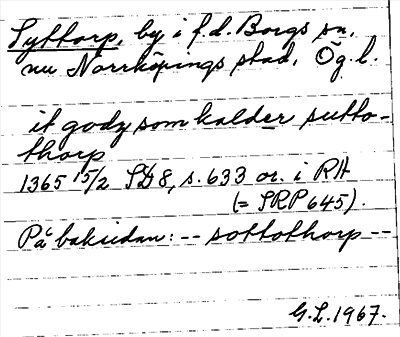 Syttorp, by i f.d. Borgs sn,
nu Norrköpings stad, Ög.l.
it godz som kalder sutto-
thorp
1365 15/2 SD 8, s. 633 or. i RA
(= SRP 645).
På baksidan: -- sottothorp --
G.L. 1967.